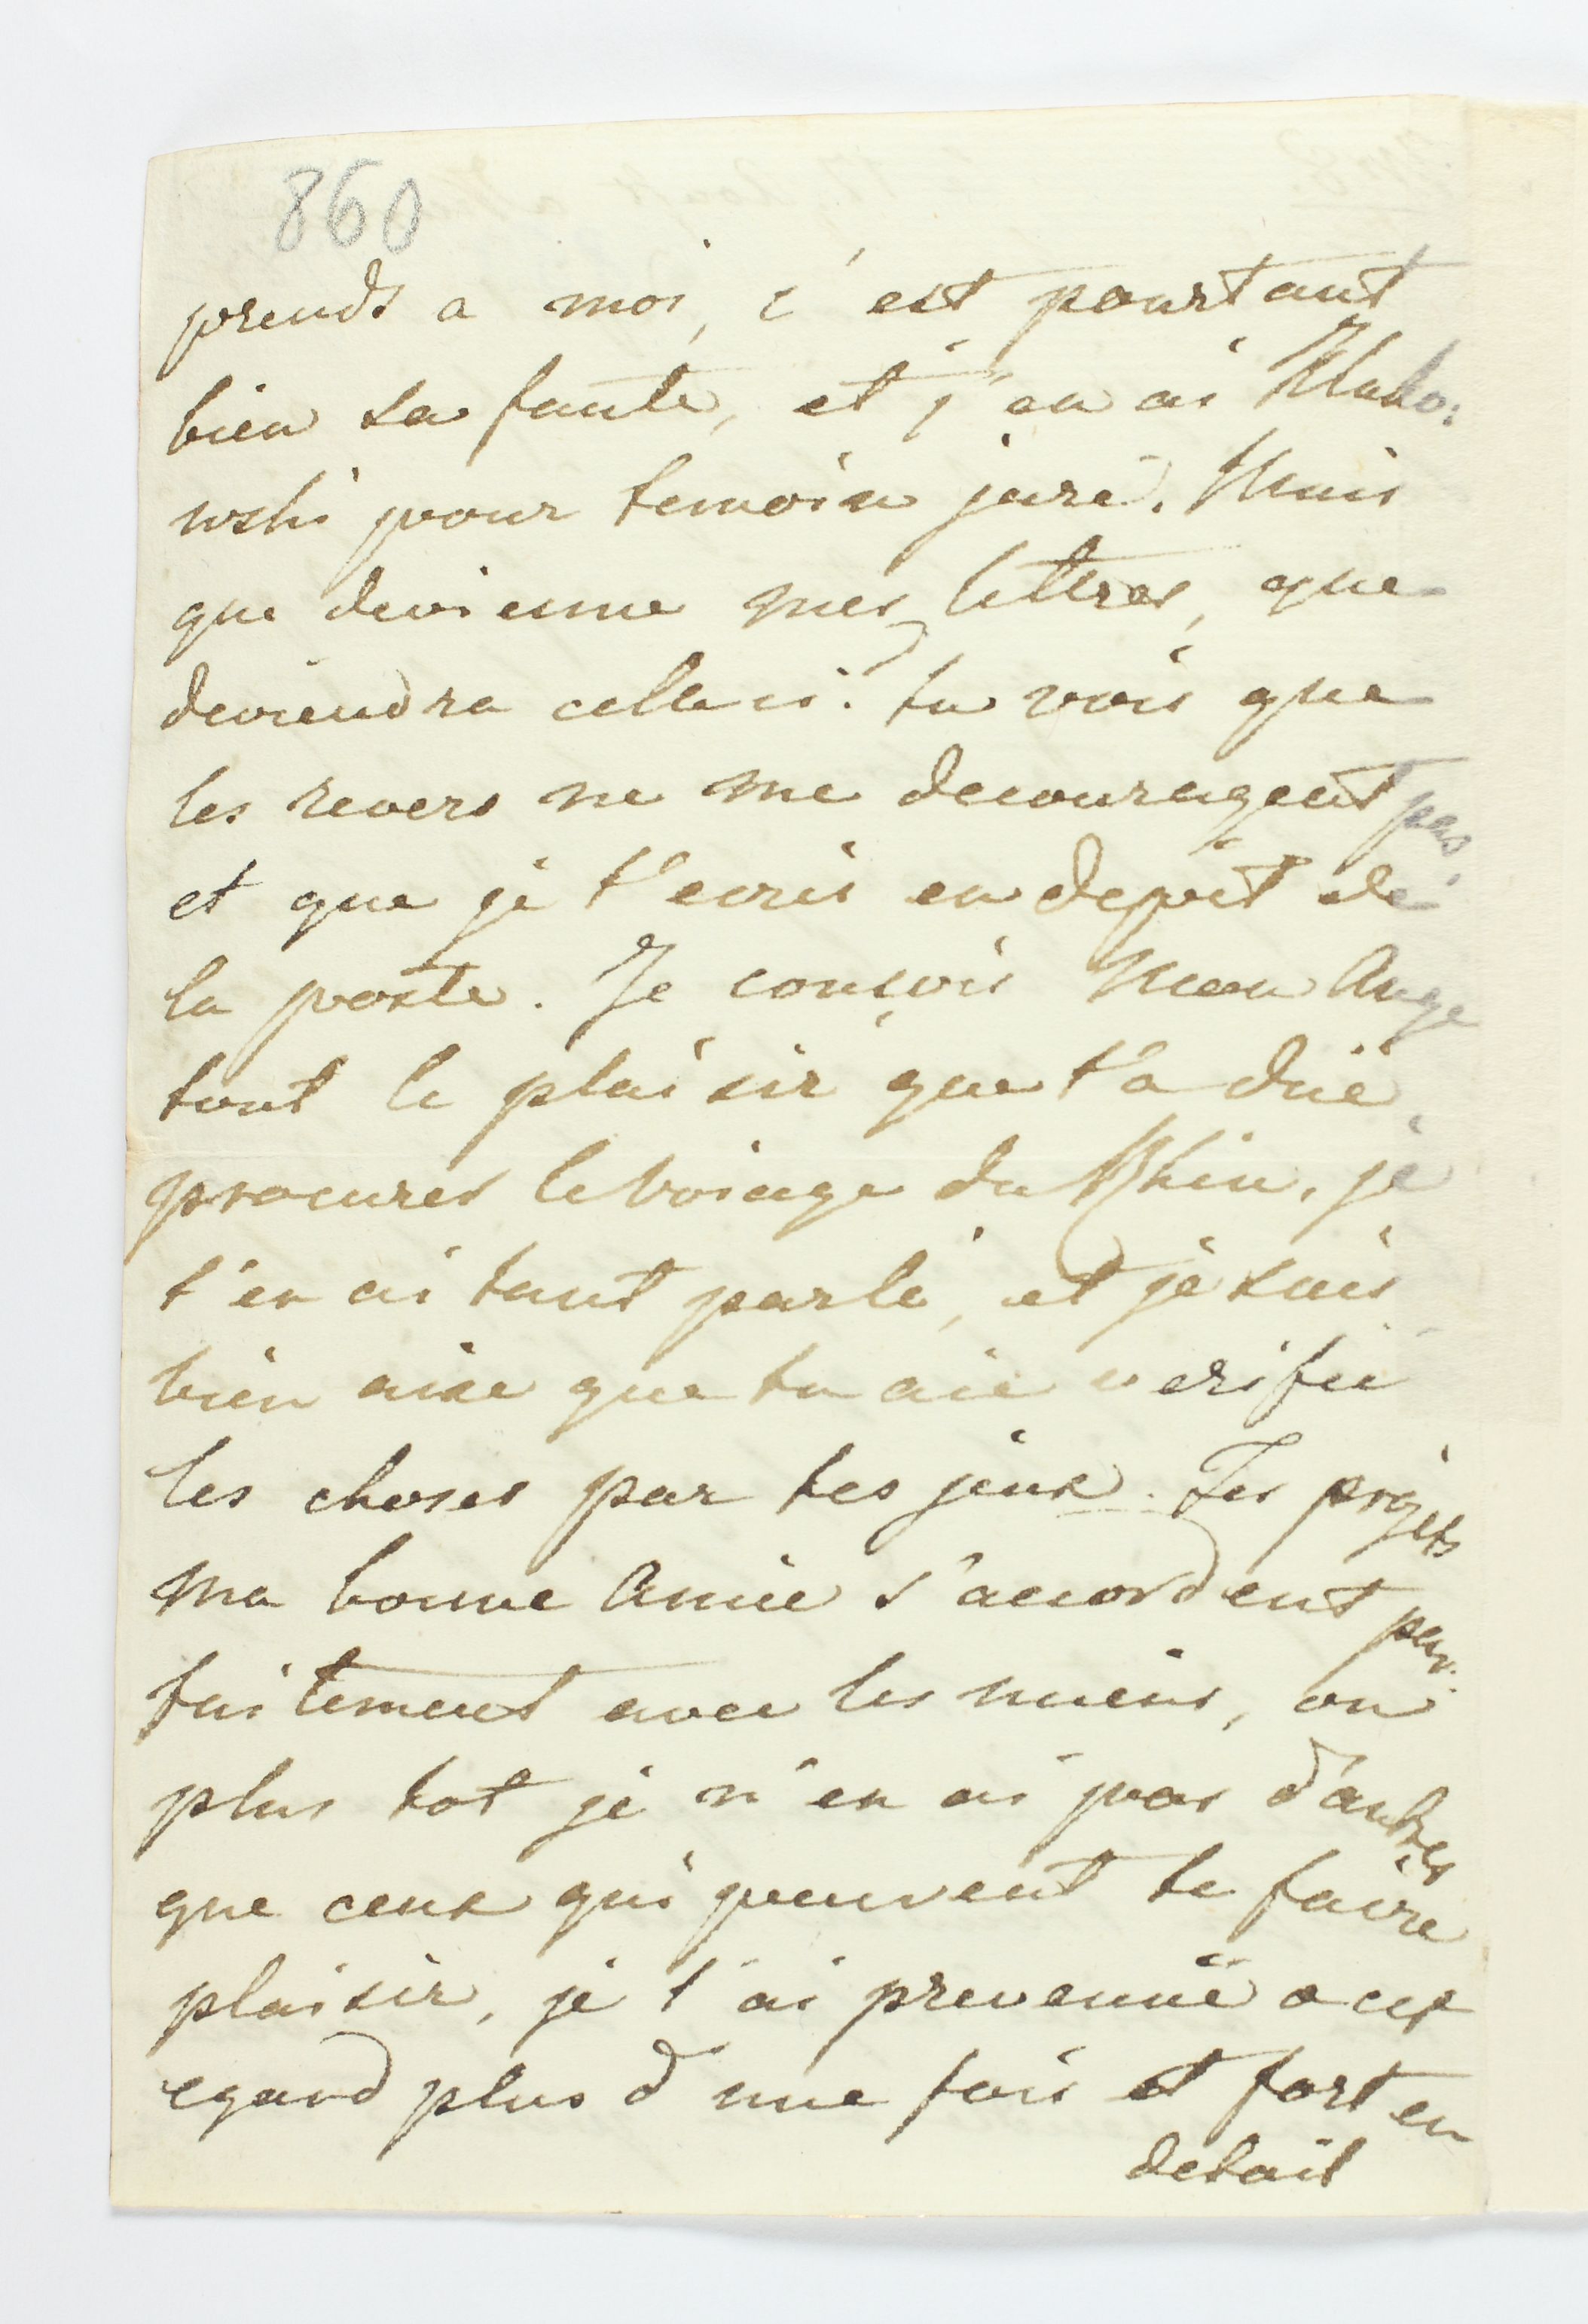 860
prends a moi, c'est pourtant
bien sa faute, et j'en ai
wski pour temoin juré. Mais
que devienne mes lettres, que
deviendra celle ci. tu vois que
les revers ne me decouragent pas,
et que je t'ecris en depit de
la poste. Je conçois Mon Ange
tout le plaisir que t'a düe
procurer le voiage du Rhin, je
t'en ai tant parlé, et je suis
bien aise que tu aie verifié
les choses par tes jeux. Tes projets
ma bonne Amie s'accordent par:
faitement avec les miens, ou
plus tot je n'en ai pas d'autres
que ceux qui peuvent te faire
plaisir, je t'ai prevenuë a cet
egard plus d'une fois et fort en
detail